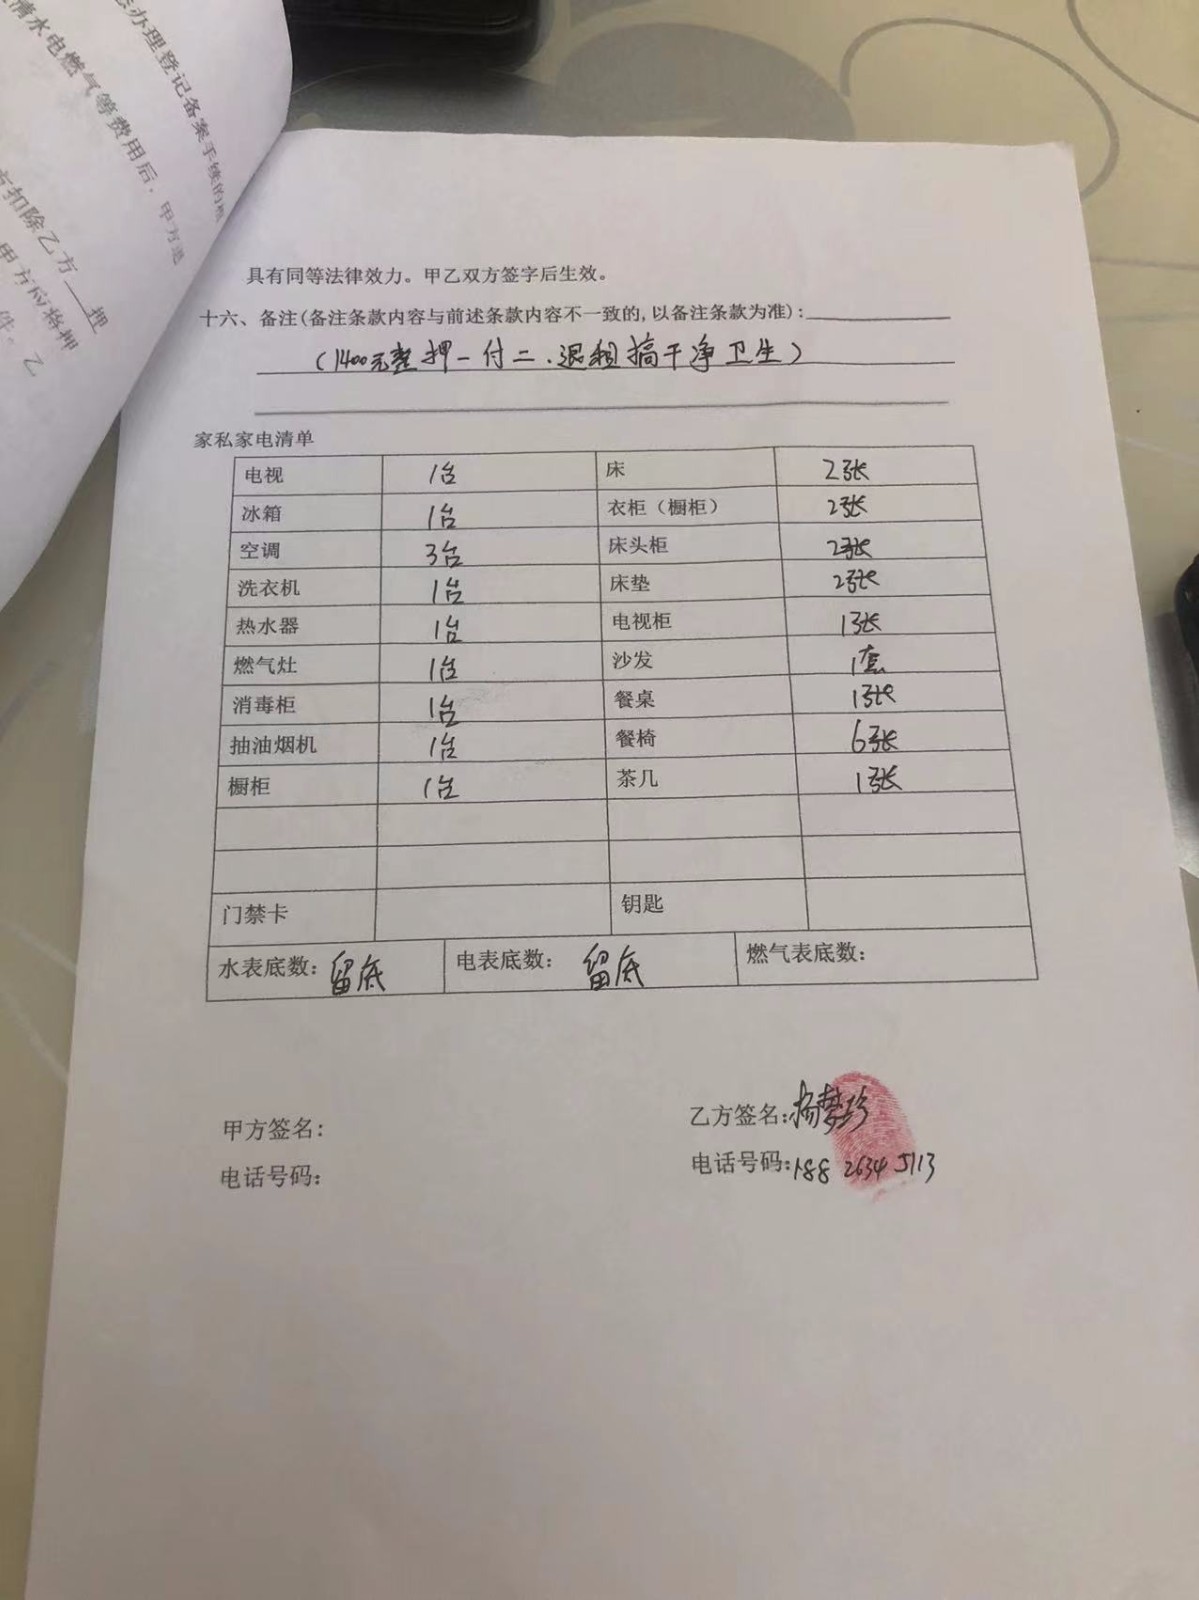 办理登记备案手续的
清水电燃气等费用后，甲方退
方扣除乙方____押
甲方应将押
件。乙
具有同等法律效力。甲乙双方签字后生效。
十六、备注(备注条款内容与前述条款内容不一致的,以备注条款为准):
(1400元整押一付二.退租搞干净卫生)
家私家电清单
电视 1台 床 2张
冰箱 1台 衣柜（橱柜） 2张
空调 3台 床头柜 2张
洗衣机 1台 床垫 2张
热水器 1台 电视柜 1张
燃气灶 1台 沙发 1套
消毒柜 1台 餐桌 1张
抽油烟机 1台 餐椅 6张
橱柜 1台 茶几 1张
门禁卡 钥匙
水表底数: 留底 电表底数: 留底 燃气表底数:
甲方签名: 乙方签名:杨梦珍
电话号码: 电话号码:188 2634 5113